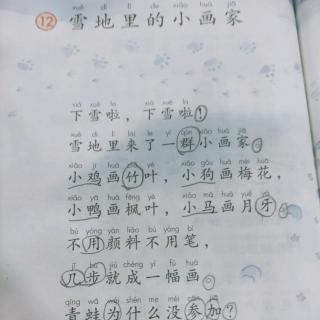 xuě dì lǐ de xiǎo huà jiā
12 雪地里的小画家
xià xuě la xià xuě la
下雪啦，下雪啦！
xuě dì lǐ lái le yì qún xiǎo huà jiā
雪地里来了一群小画家。
xiǎo jī huà zhú yè xiǎo gǒu huà méi huā
小鸡画竹叶，小狗画梅花，
xiǎo yā huà fēng yè xiǎo mǎ huà yuè yá
小鸭画枫叶，小马画月牙。
bú yòng yán liào bú yòng bǐ
不用颜料不用笔，
jǐ bù jiù chéng yì fú huà
几步就成一幅画。
qīng wā wèi shén me méi cān jiā
青蛙为什么没参加？